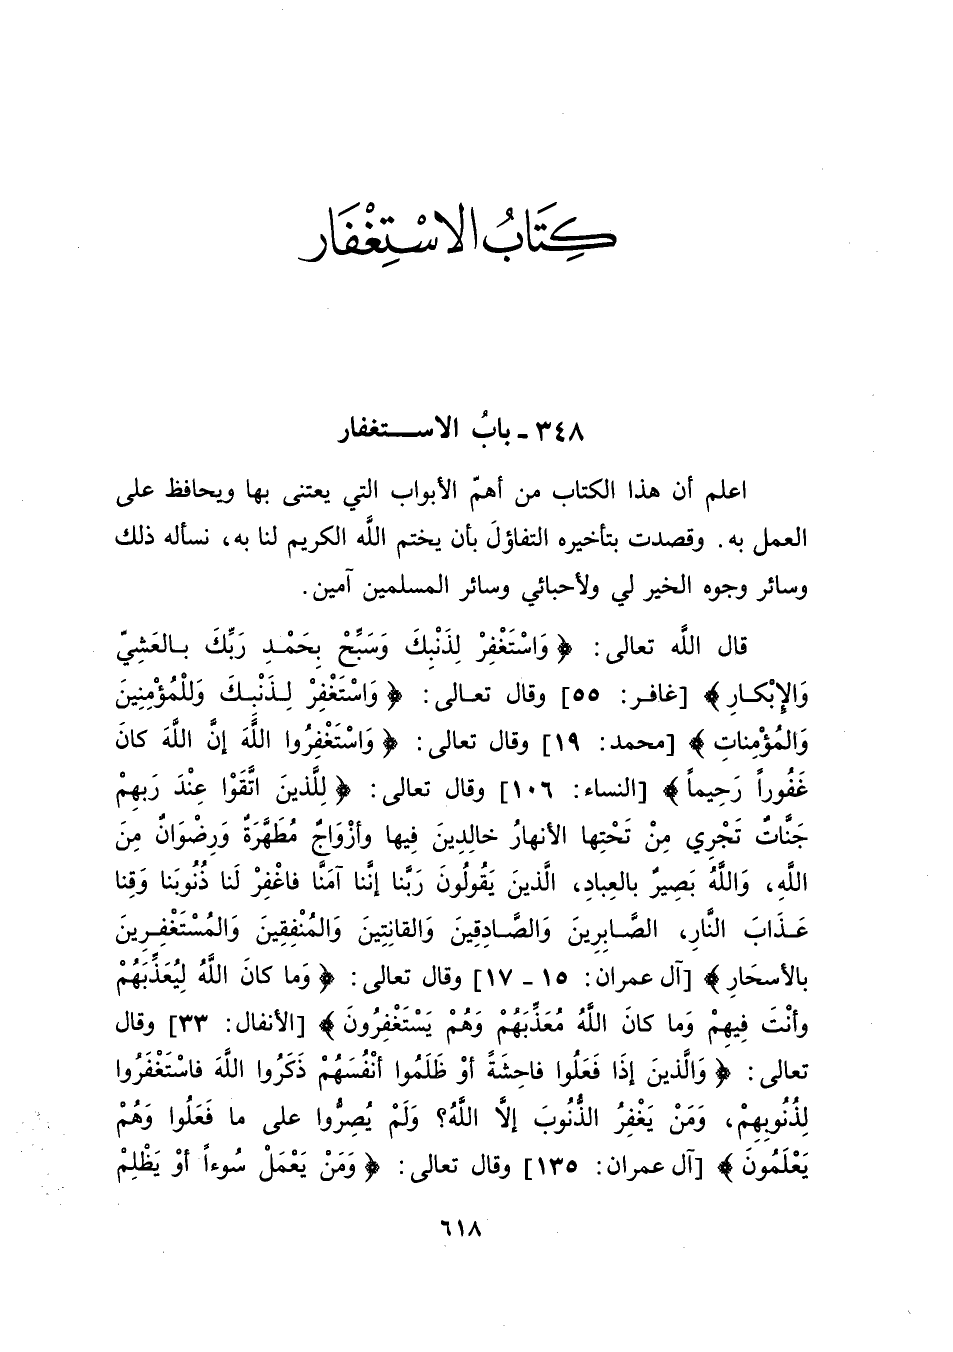 كِتَابُ الاسْتِغْفَار
٣٤٨ ـ بابُ الاستغفار
اعلم أن هذا الكتاب من أهمّ الأبواب التي يعتنى بها ويحافظ على
العمل به. وقصدت بتأخيره التفاؤلَ بأن يختم اللَّه الكريم لنا به، نسأله ذلك
وسائر وجوه الخير لي ولأحبائي وسائر المسلمين آمين.
قال اللَّه تعالى: ﴿وَاسْتَغْفِرْ لِذَنْبِكَ وَسَبِّحْ بِحَمْدِ رَبِّكَ بالعَشِيّ
وَالإِبْكارِ﴾ [غافر: ٥٥] وقال تعالى: ﴿وَاسْتَغْفِرْ لِذَنْبِكَ وَللْمُؤْمِنِينَ
وَالمُؤْمِناتِ﴾ [محمد: ١٩] وقال تعالى: ﴿وَاسْتَغْفِرُوا اللَّهَ إنَّ اللَّهَ كانَ
غَفُوراً رَحِيماً﴾ [النساء: ١٠٦] وقال تعالى: ﴿لِلَّذينَ اتَّقَوْا عِنْدَ رَبهِمْ
جَنَّاتٌ تَجْرِي مِنْ تَحْتِها الأنهارُ خالِدِينَ فِيها وأزْوَاجٌ مُطَهَّرَةٌ وَرِضْوَانٌ مِنَ
اللَّهِ، وَاللَّهُ بَصِيرٌ بالعِبادِ، الَّذينَ يَقُولُونَ رَبَّنا إنَّنا آمَنَّا فاغْفِرْ لَنا ذُنُوبَنا وَقِنا
عَذَابَ النَّارِ، الصَّابِرِينَ وَالصَّادِقِينَ وَالقانِتِينَ وَالمُنْفِقِينَ وَالمُسْتَغْفِرِينَ
بالأسحَارِ﴾ [آل عمران: ١٥ ـ ١٧] وقال تعالى: ﴿وَما كانَ اللَّهُ لِيُعَذِّبَهُمْ
وأنْتَ فِيهِمْ وَما كانَ اللَّهُ مُعَذِّبَهُمْ وَهُمْ يَسْتَغْفِرُونَ﴾ [الأنفال: ٣٣] وقال
تعالى: ﴿وَالَّذينَ إذَا فَعَلُوا فاحِشَةً أوْ ظَلَمُوا أنْفُسَهُمْ ذَكَرُوا اللَّهَ فاسْتَغْفَرُوا
لِذُنُوبِهِمْ، وَمَنْ يَغْفِرُ الذُّنُوبَ إلاَّ اللَّهُ؟ وَلَمْ يُصِرُّوا على ما فَعَلُوا وَهُمْ
يَعْلَمُونَ﴾ [آل عمران: ١٣٥] وقال تعالى: ﴿وَمَنْ يَعْمَلْ سُوءاً أوْ يَظْلِمْ
٦١٨